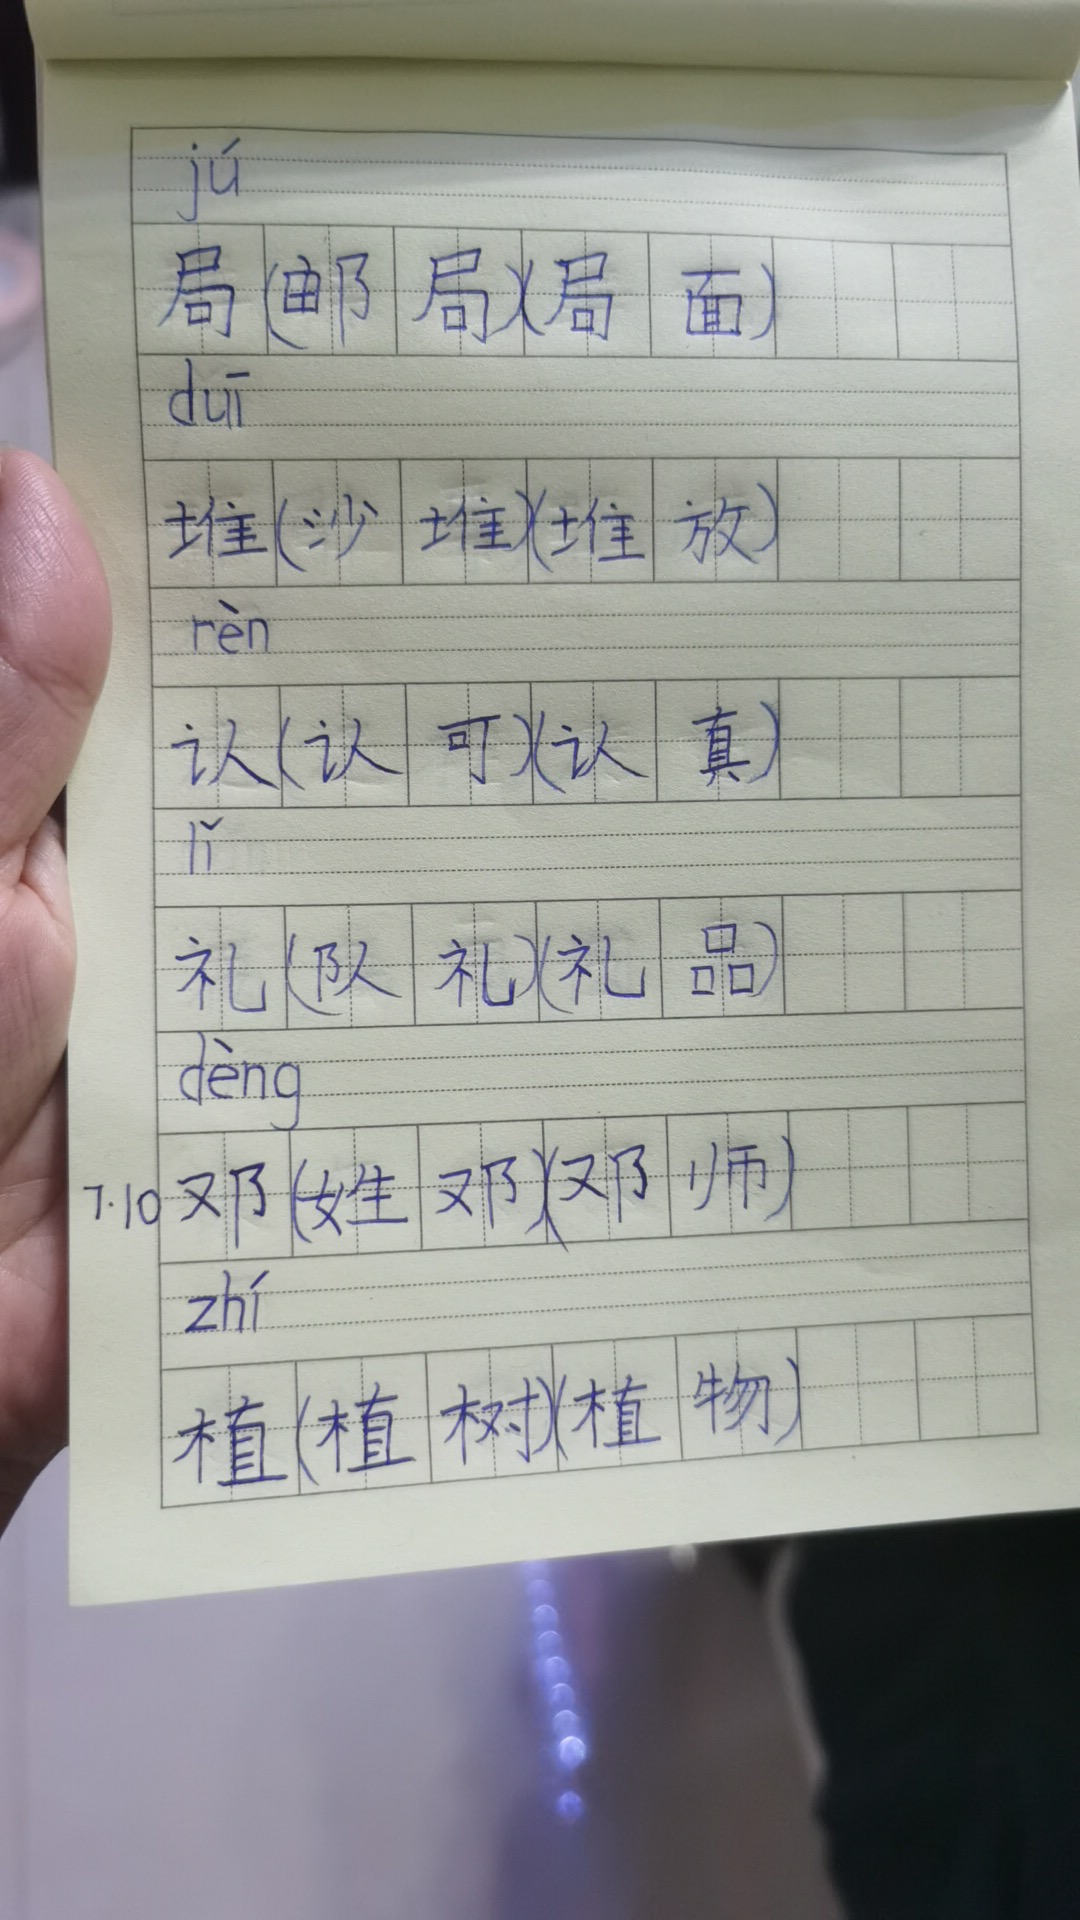 jú
局(邮局)(局面)
duī
堆(沙堆)(堆放)
rèn
认(认可)(认真)
lǐ
礼(队礼)(礼品)
dèng
7.10 邓(姓邓)(邓师)
zhí
植(植树)(植物)